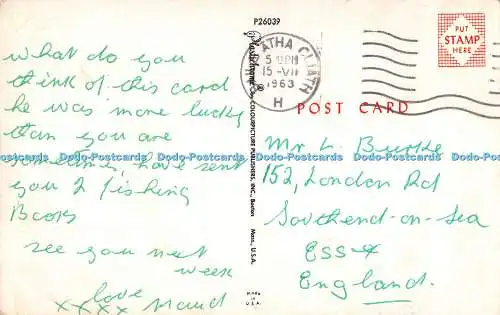 P26039
What do you
think of this card
he was more lucky
than you are
sometimes, have sent
you 2 fishing
Books
see you next
week
love
xxxx Maud
Plastichrome® by COLOURPICTURE PUBLISHERS, INC., Boston Mass., U.S.A.
MADE IN U.S.A.
ATHA CLIATH
5 PM
15-VII
1963
H
PUT
STAMP
HERE
POST CARD
Mr L. Burke
152, London Rd
Southend-on-Sea
ESSex
England.
Dodo-Postcards Dodo-Postcards Dodo-Postcards Dodo-Postcards Dodo-Postcards Dodo-Postcards